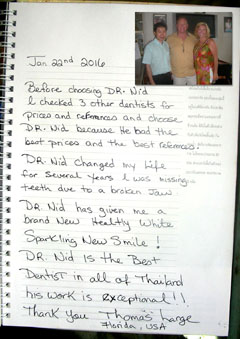 Jan 22nd 2016
Before choosing DR. Nid
I checked 3 other dentists for
prices and references and choose
DR. Nid because He had the
best prices and the best references.
DR. Nid changed my Life
for Several years I was missing
teeth due to a broken Jaw
DR. Nid has given me a
brand New Healthy White
Sparkling New Smile!
DR. Nid Is the Best
Dentist in all of Thailand
his work is exceptional!!
Thank You Thomas Large
Florida, USA